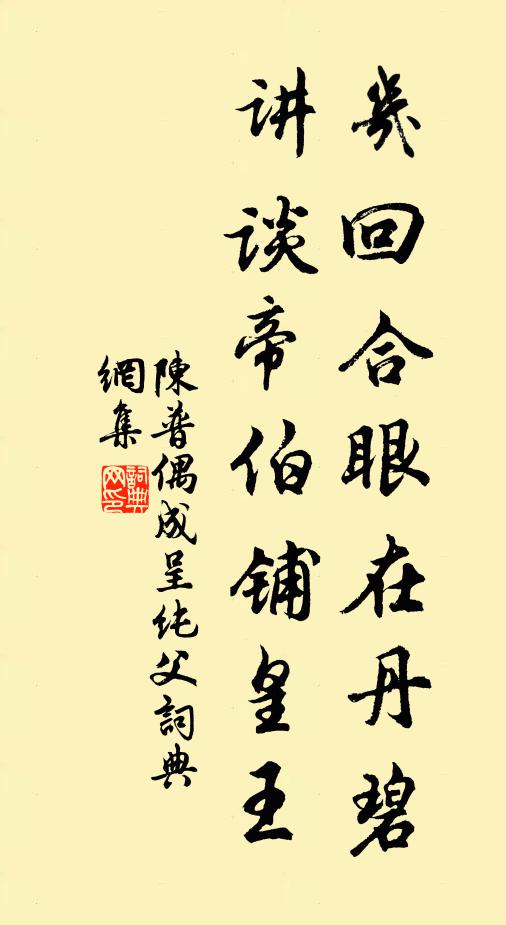 几回合眼在丹碧
讲谈帝伯铺皇王
陳普偶成呈纯父詞典
網集
詞典
网印